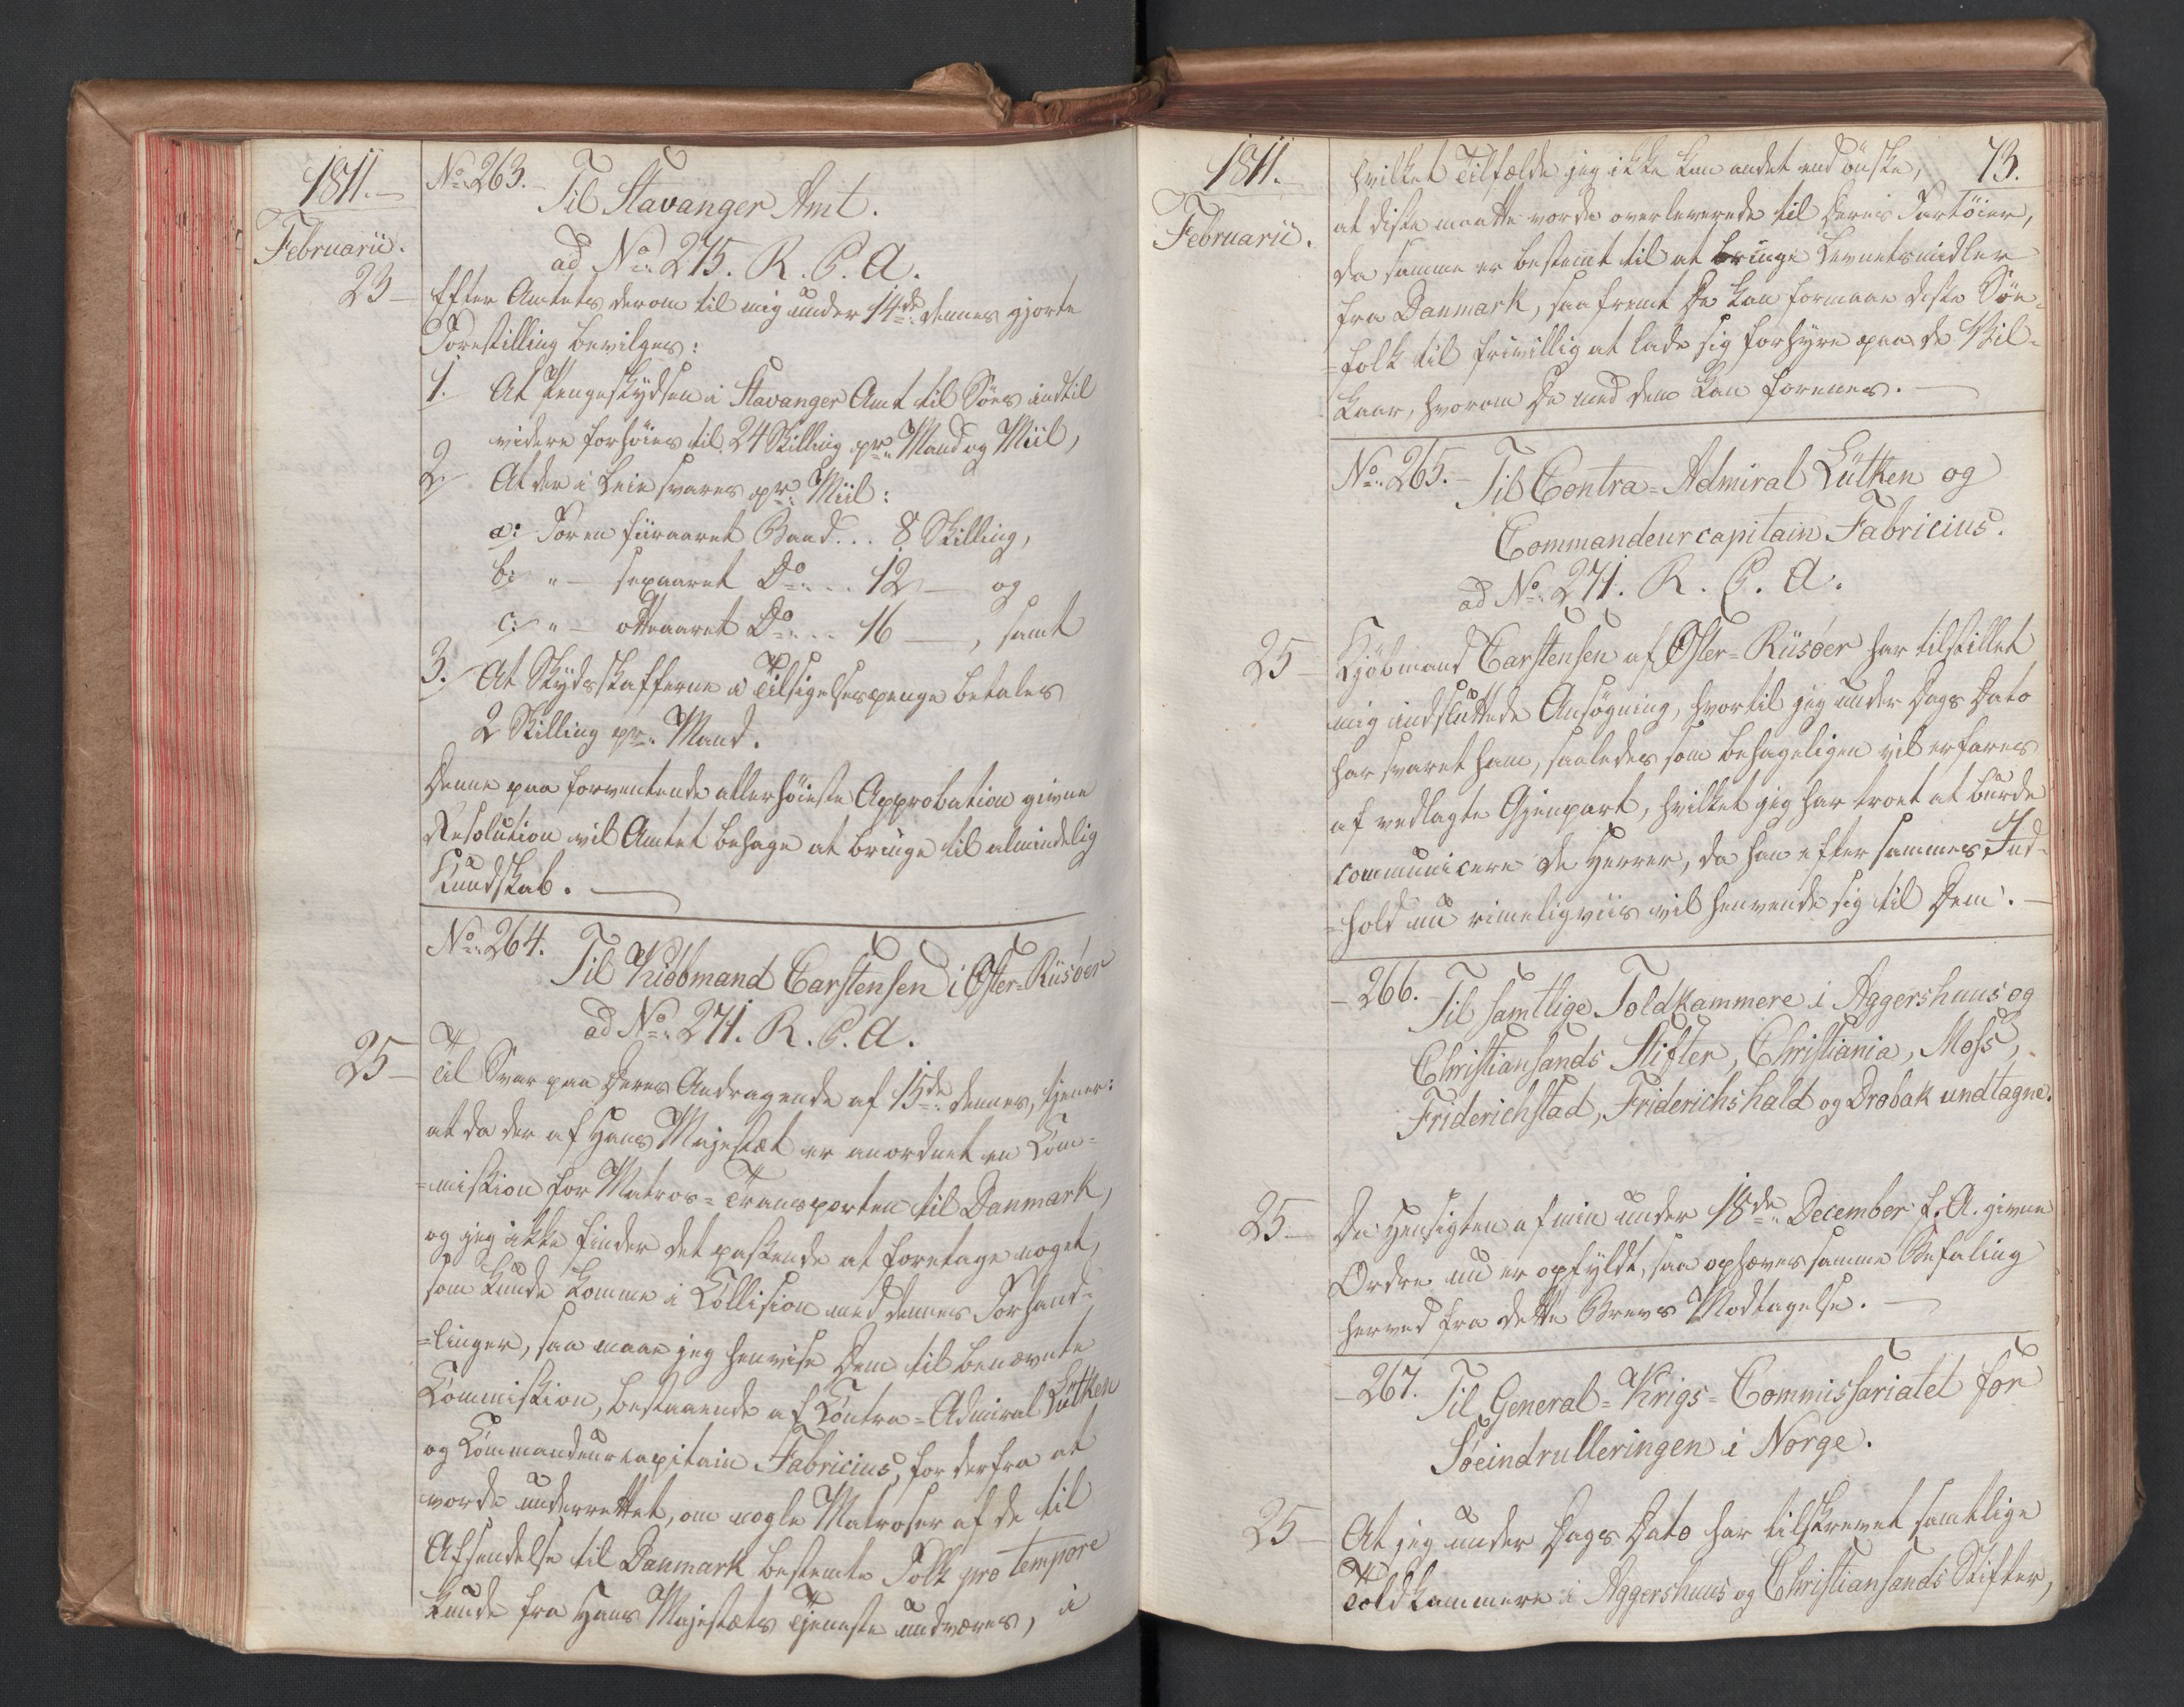 1811.
Februarii.
No. 263.
Til Stavanger Amt.
ad No. 275. R. C. A.
23
Efter Amtets derom til mig under 14de dennes gjorte
Forestilling bevilges:
1. At Pengeskydsen i Stavanger Amt til Søes indtil
videre forhöies til 24 Skilling pr. Mand og Miil,
2. At der i Leie svares pr. Miil:
a: For en fiiraaret Baad... 8 Skilling,
b: " — sexaaret Do.... 12 — og
c: " — otteaaret Do.... 16 —, samt
3. At Skydsskafferne i Tilsigelsespenge betales
2 Skilling pr. Mand.
Denne paa forventende allerhöieste Approbation givne
Resolution vil Amtet behage at bringe til almindelig
Kundskab. —
No. 264.
Til Kiöbmand Carstensen i Öster-Riisöer
ad No. 271. R. C. A.
25
Til Svar paa Deres Andragende af 15de dennes, tjener:
at da der af Hans Majestæt er anordnet en Com-
=mission for Matros-Transporten til Danmark,
og jeg ikke finder det passende at foretage noget,
som kunde komme i Collision med dennes Forhand-
=linger, saa maae jeg henvise Dem til benævnte
Commission, bestaaende af Contra-Admiral Lütken
og Commandeurcapitain Fabricius, for derfra at
vorde underrettet, om nogle Matroser af de til
Afsendelse til Danmark bestemte Folk pro tempore
kunde fra Hans Majestæts Tjeneste undværes, i
1811.
Februarii.
73.
hvilket Tilfælde jeg ikke kan andet end önske,
at disse maatte vorde overleverede til Deres Fartöier,
da samme er bestemt til at bringe Levnetsmidler
fra Danmark, saafremt De kan formaae disse Söe-
=folk til frivillig at lade sig forhyre paa de Vil-
kaar, hvorom De med dem kan forenes. —
No. 265.
Til Contra-Admiral Lütken og
Commandeurcapitain Fabricius.
ad No. 271. R. C. A.
25
Kjöbmand Carstensen af Öster-Riisöer har tilstillet
mig indsluttede Ansögning, hvortil jeg under Dags Dato
har svaret ham, saaledes som behageligen vil erfares
af vedlagte Gjenpart, hvilket jeg har troet at burde
communicere de Herrer, da han efter sammes Ind-
=hold nu rimeligviis vil henvende sig til Dem. —
— 266.
Til samtlige Toldkammere i Aggershuus og
Christiansands Stifter, Christiania, Moss,
Friderichstad, Friderichshald og Dröbak undtagne.
25
Da Hensigten af min under 18de December f. A. givne
Ordre nu er opfyldt, saa ophæves samme Befaling
herved fra dette Brevs Modtagelse. —
— 267.
Til General-Krigs-Commissariatet for
Söeindrulleringen i Norge.
25
At jeg under Dags Dato har tilskrevet samtlige
Toldkammere i Aggershuus og Christiansands Stifter,